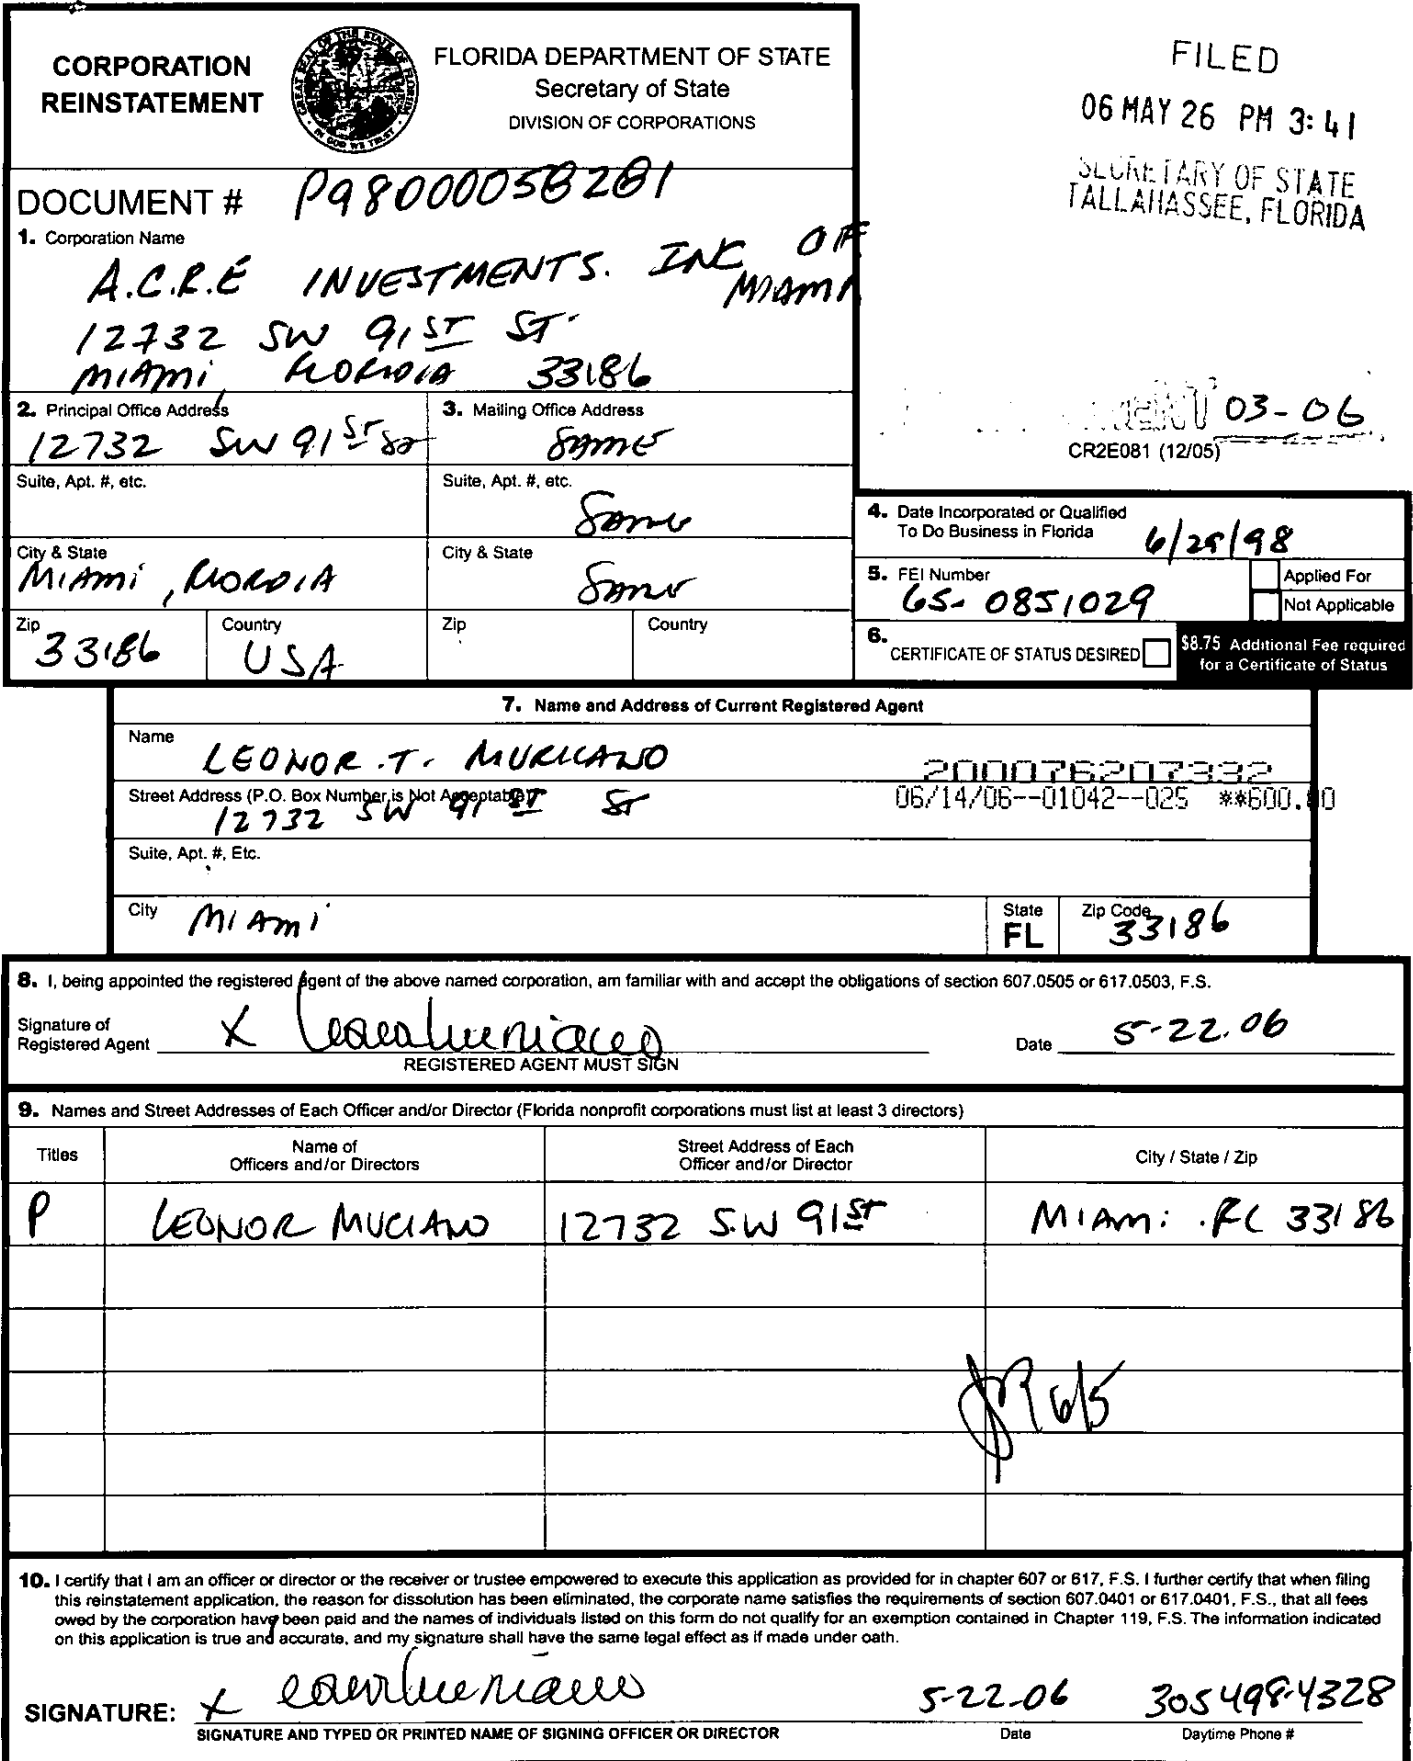 CORPORATION
REINSTATEMENT
GREAT SEAL OF THE STATE OF FLORIDA
IN GOD WE TRUST
FLORIDA DEPARTMENT OF STATE
Secretary of State
DIVISION OF CORPORATIONS
FILED
06 MAY 26 PM 3:41
SECRETARY OF STATE
TALLAHASSEE, FLORIDA
DOCUMENT # P98000058281
1. Corporation Name
A.C.R.E INVESTMENTS. INC OF
MIAMI
12732 SW 91ST ST.
MIAMI, FLORIDIA 33186
03-06
CR2E081 (12/05)
2. Principal Office Address
12732 SW 91ST ST
3. Mailing Office Address
SAME
Suite, Apt. #, etc.
Suite, Apt. #, etc.
SAME
City & State
MIAMI, FLORDIA
City & State
SAME
Zip
33186
Country
USA
Zip
Country
4. Date Incorporated or Qualified
To Do Business in Florida
6/29/98
5. FEI Number
65-0851029
Applied For
Not Applicable
6.
CERTIFICATE OF STATUS DESIRED
$8.75 Additional Fee required
for a Certificate of Status
7. Name and Address of Current Registered Agent
Name
LEONOR .T. MURICANO
200076207332
06/14/06--01042--025 **600.00
Street Address (P.O. Box Number is Not Acceptable)
12732 SW 91 ST ST
Suite, Apt. #, Etc.
City
MIAMI
State
FL
Zip Code
33186
8. I, being appointed the registered agent of the above named corporation, am familiar with and accept the obligations of section 607.0505 or 617.0503, F.S.
Signature of
Registered Agent
X
REGISTERED AGENT MUST SIGN
Date 5-22.06
9. Names and Street Addresses of Each Officer and/or Director (Florida nonprofit corporations must list at least 3 directors)
Titles
Name of
Officers and/or Directors
Street Address of Each
Officer and/or Director
City / State / Zip
P LEONOR MUCIANO 12732 S.W 91ST MIAMI .FL 33186
6/5
10. I certify that I am an officer or director or the receiver or trustee empowered to execute this application as provided for in chapter 607 or 617, F.S. I further certify that when filing
this reinstatement application, the reason for dissolution has been eliminated, the corporate name satisfies the requirements of section 607.0401 or 617.0401, F.S., that all fees
owed by the corporation have been paid and the names of individuals listed on this form do not qualify for an exemption contained in Chapter 119, F.S. The information indicated
on this application is true and accurate, and my signature shall have the same legal effect as if made under oath.
SIGNATURE: X
5-22-06 305 498-4328
SIGNATURE AND TYPED OR PRINTED NAME OF SIGNING OFFICER OR DIRECTOR
Date
Daytime Phone #